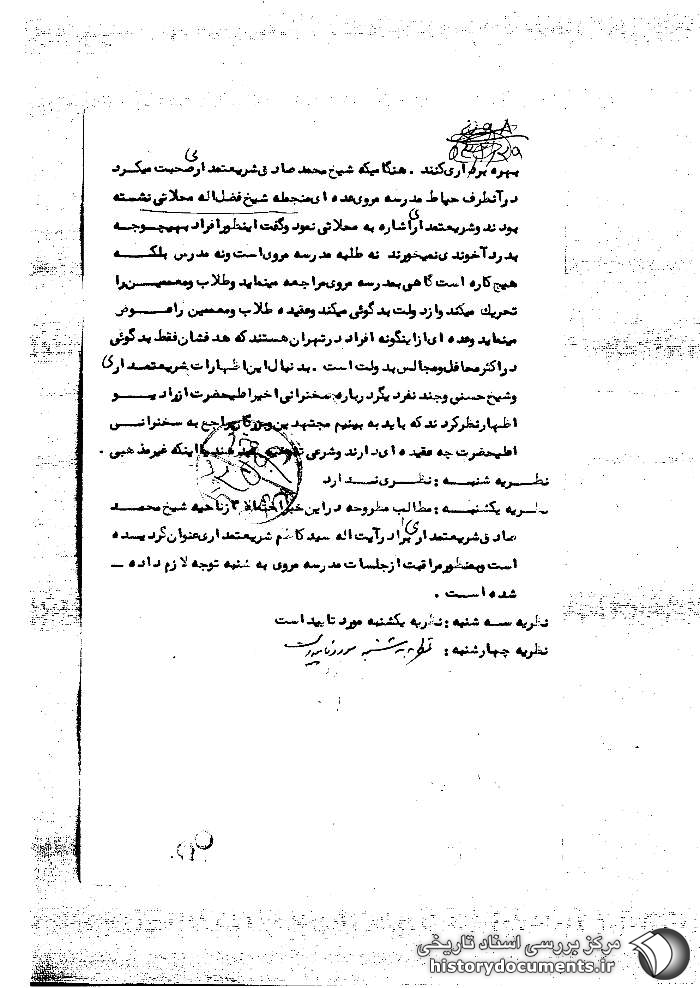 بهره برداری کنند . هنگامیکه شیخ محمد صادق شریعتمداری صحبت میکرد
درآنطرف حیاط مدرسه مروی عده ای منجمله شیخ فضل اله محلاتی نشسته
بودند و شریعتمداری اشاره به محلاتی نمود وگفت اینطور افراد بهیچوجه
بدرد آخوندی نمیخورند نه طلبه مدرسه مروی است ونه مدرس بلکه
هیچکاره است گاهی بمدرسه مروی مراجعه مینماید وطلاب ومعممین را
تحریک میکند واز دولت بدگوئی میکند وعقیده طلاب ومعممین راعوض
مینماید وعده ای ازاینگونه افراد درتهران هستند که هدفشان فقط بدگوئی
دراکثر محافل ومجالس بدولت است . بدنبال این اظهارات شریعتمداری
وشیخ حسنی وچند نفر دیگر درباره سخنرانی اخیر اعلیحضرت از رادیو
اظهارنظر کردند که باید به بینیم مجتهدین وبزرگان راجع به سخنرانی
اعلیحضرت چه عقیده ای دارند وشرعی یا اینکه غیرمذهبی .
نظریه شنبه : نظری ندارد
نظریه یکشنبه : مطالب مطروحه دراین خبر احتمالا از ناحیه شیخ محمد
صادق شریعتمداری برادر آیت اله سید کاظم شریعتمداری عنوان گردیده
است وبمنظور مراقبت ازجلسات مدرسه مروی به شنبه توجه لازم داده
شده است .
نظریه سه شنبه : نظریه یکشنبه مورد تایید است
نظریه چهارشنبه : نظریه سه شنبه مورد تایید است
مرکز بررسی اسناد تاریخی
historydocuments.ir